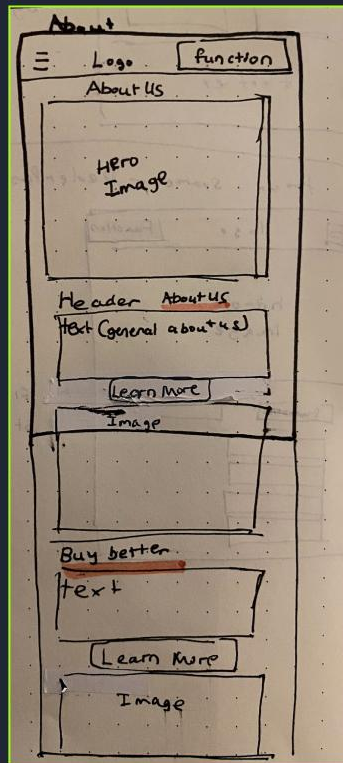 About
Logo function
About Us
Hero
Image
Header About us
text (general about us)
Learn More
Image
Buy better
text
Learn More
Image